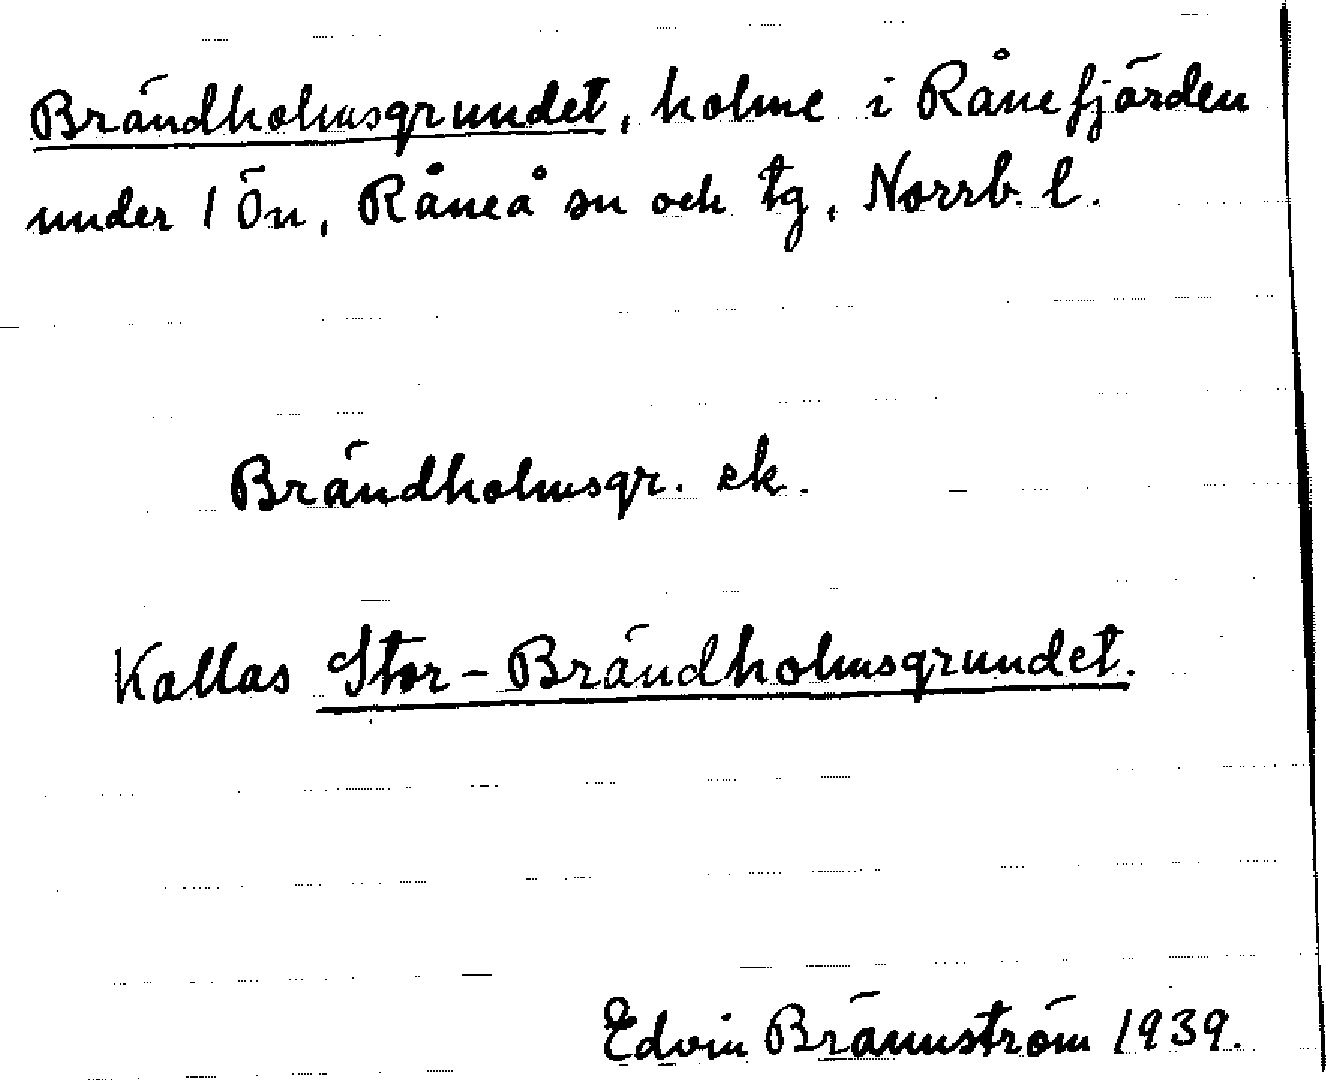 Brändholmsgrundet, holme i Rånefjärden
under 1 Ön, Råneå sn och tg, Norrb. l.
Brändholmsgr. ek.
Kallas Stor-Brändholmsgrundet.
Edvin Brännström 1939.